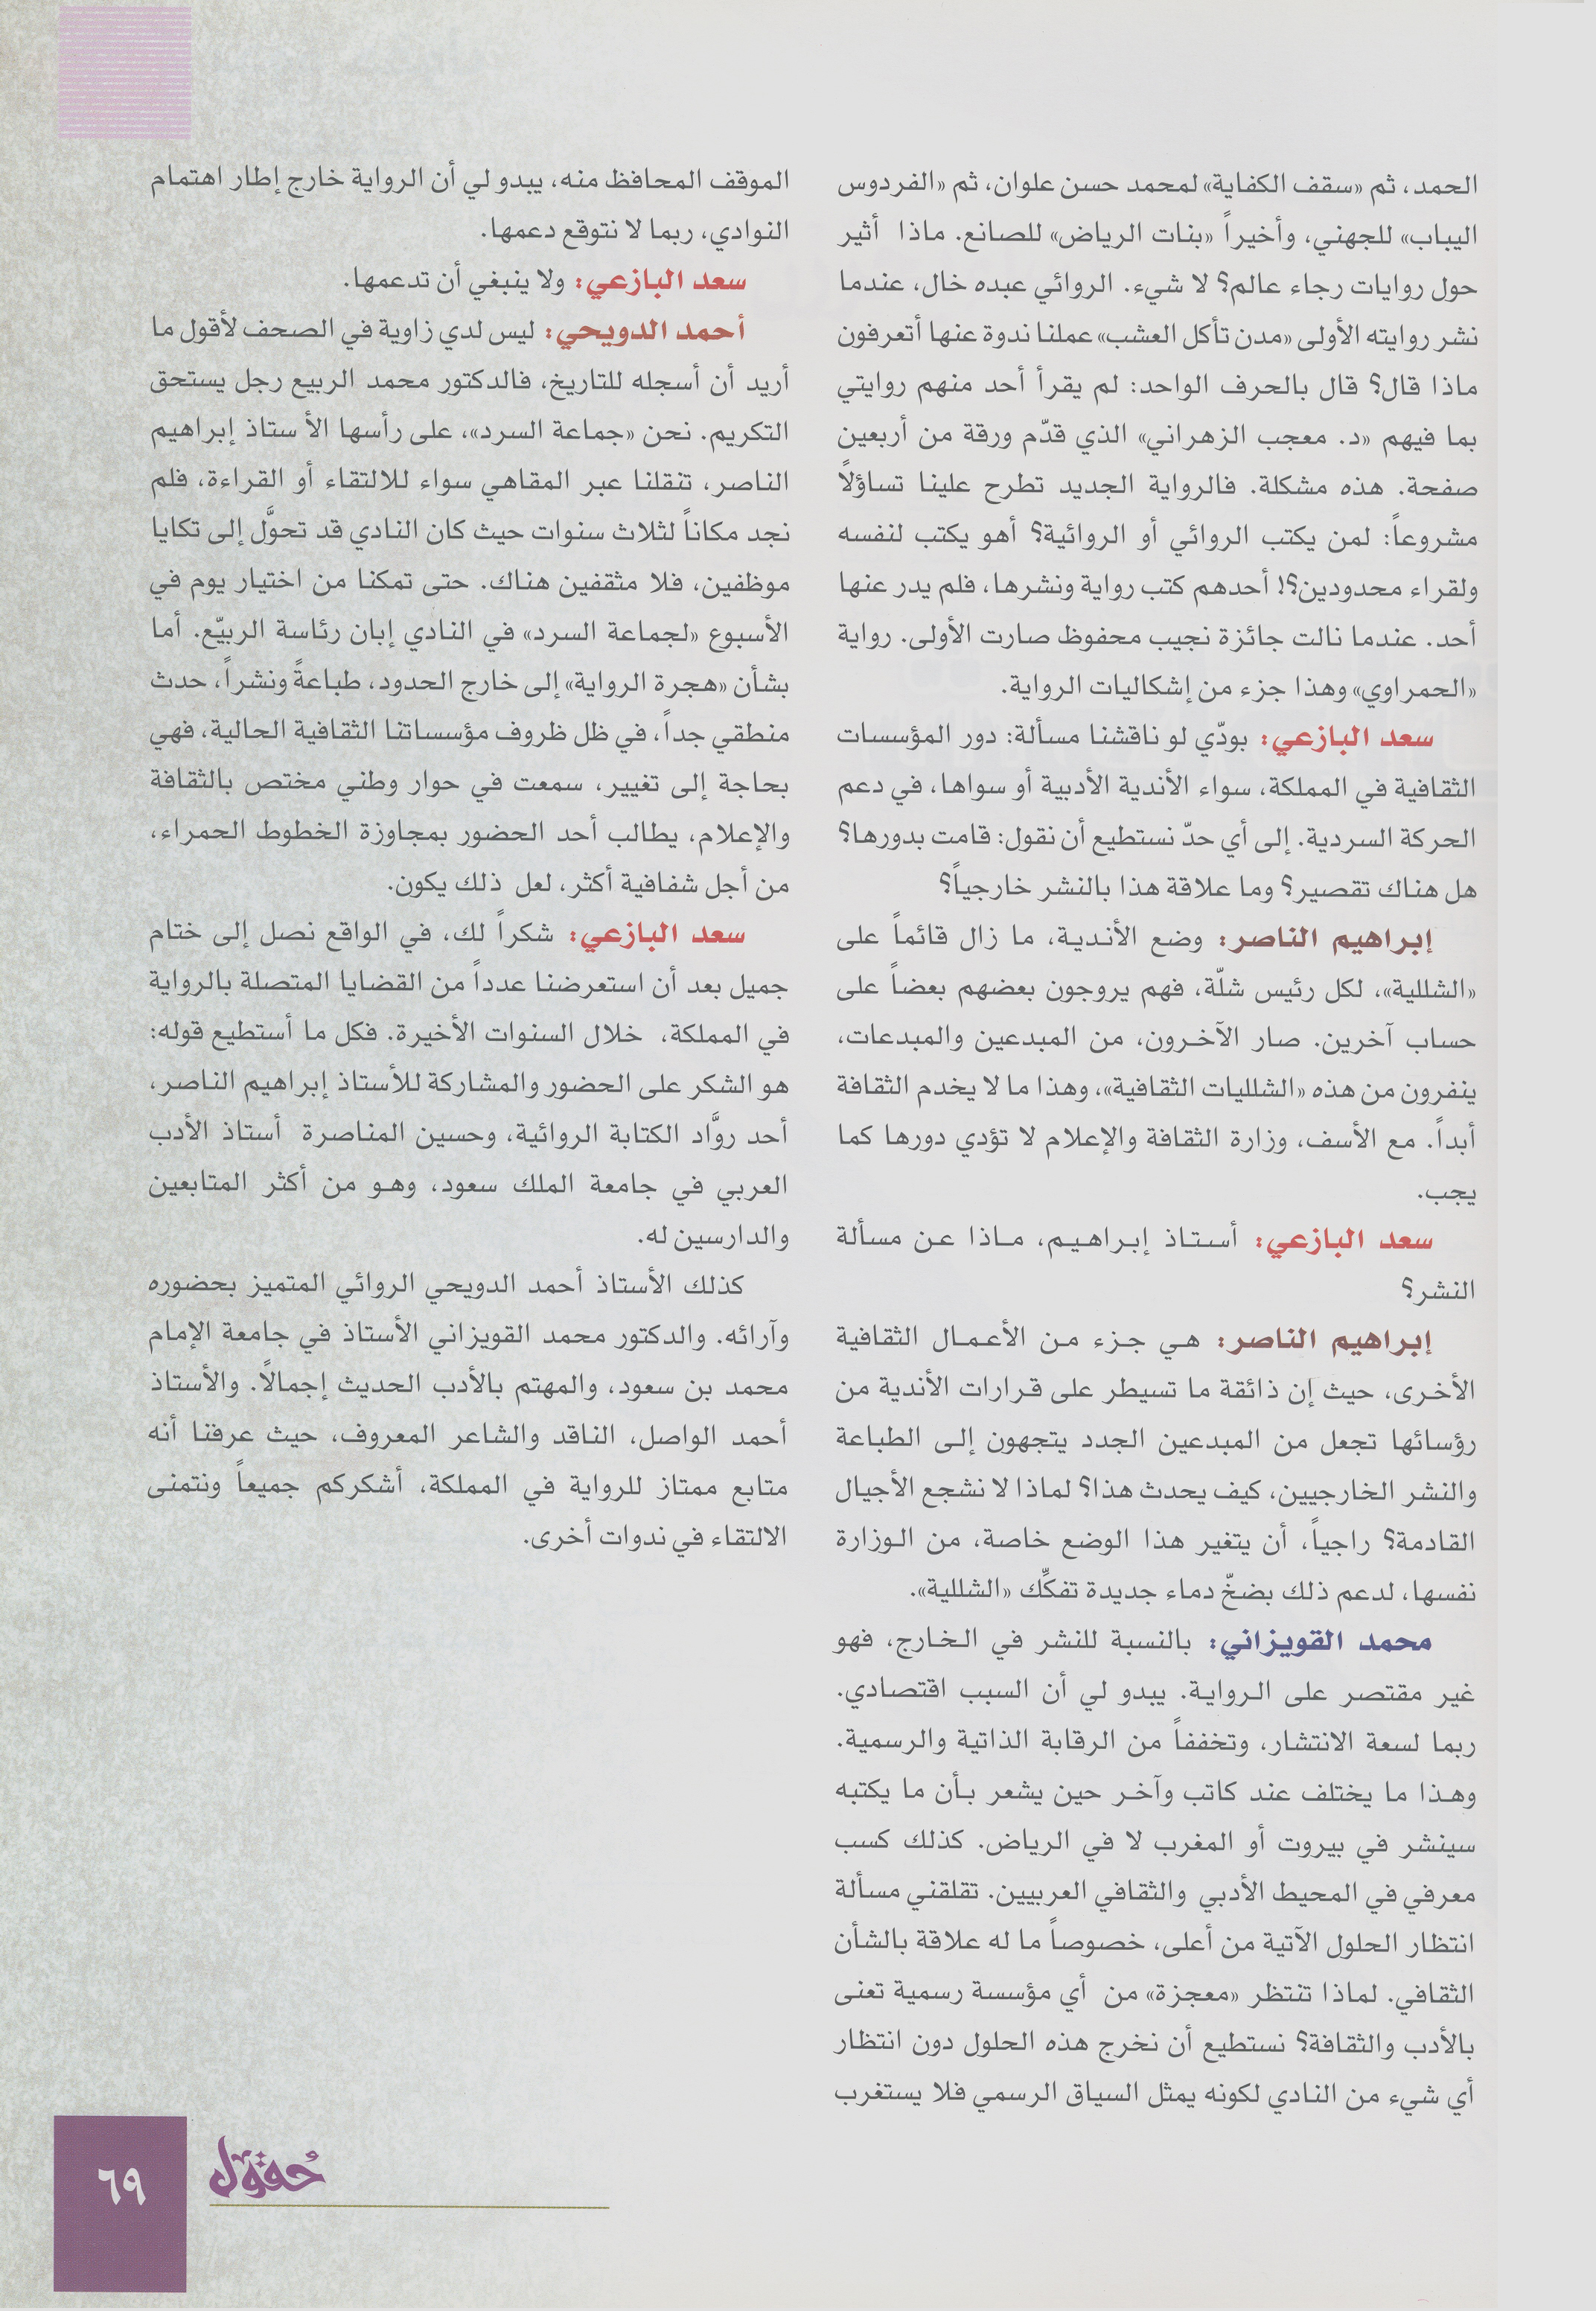 الحمد، ثم «سقف الكفاية» لمحمد حسن علوان، ثم «الفردوس
اليباب» للجهني، وأخيراً «بنات الرياض» للصانع. ماذا أثير
حول روايات رجاء عالم؟ لا شيء. الروائي عبده خال، عندما
نشر روايته الأولى «مدن تأكل العشب» عملنا ندوة عنها أتعرفون
ماذا قال؟ قال بالحرف الواحد: لم يقرأ أحد منهم روايتي
بما فيهم «د. معجب الزهراني» الذي قدّم ورقة من أربعين
صفحة. هذه مشكلة. فالرواية الجديد تطرح علينا تساؤلاً
مشروعاً: لمن يكتب الروائي أو الروائية؟ أهو يكتب لنفسه
ولقراء محدودين؟! أحدهم كتب رواية ونشرها، فلم يدر عنها
أحد. عندما نالت جائزة نجيب محفوظ صارت الأولى. رواية
«الحمراوي» وهذا جزء من إشكاليات الرواية.
سعد البازعي: بودّي لو ناقشنا مسألة: دور المؤسسات
الثقافية في المملكة، سواء الأندية الأدبية أو سواها، في دعم
الحركة السردية. إلى أي حدّ نستطيع أن نقول: قامت بدورها؟
هل هناك تقصير؟ وما علاقة هذا بالنشر خارجياً؟
إبراهيم الناصر: وضع الأندية، ما زال قائماً على
«الشللية»، لكل رئيس شلّة، فهم يروجون بعضهم بعضاً على
حساب آخرين. صار الآخرون، من المبدعين والمبدعات،
ينفرون من هذه «الشلليات الثقافية»، وهذا ما لا يخدم الثقافة
أبداً. مع الأسف، وزارة الثقافة والإعلام لا تؤدي دورها كما
يجب.
سعد البازعي: أستاذ إبراهيم، ماذا عن مسألة
النشر؟
إبراهيم الناصر: هي جزء من الأعمال الثقافية
الأخرى، حيث إن ذائقة ما تسيطر على قرارات الأندية من
رؤسائها تجعل من المبدعين الجدد يتجهون إلى الطباعة
والنشر الخارجيين، كيف يحدث هذا؟ لماذا لا نشجع الأجيال
القادمة؟ راجياً، أن يتغير هذا الوضع خاصة، من الوزارة
نفسها، لدعم ذلك بضخّ دماء جديدة تفكِّك «الشللية».
محمد القويزاني: بالنسبة للنشر في الخارج، فهو
غير مقتصر على الرواية. يبدو لي أن السبب اقتصادي.
ربما لسعة الانتشار، وتخففاً من الرقابة الذاتية والرسمية.
وهذا ما يختلف عند كاتب وآخر حين يشعر بأن ما يكتبه
سينشر في بيروت أو المغرب لا في الرياض. كذلك كسب
معرفي في المحيط الأدبي والثقافي العربيين. تقلقني مسألة
انتظار الحلول الآتية من أعلى، خصوصاً ما له علاقة بالشأن
الثقافي. لماذا تنتظر «معجزة» من أي مؤسسة رسمية تعنى
بالأدب والثقافة؟ نستطيع أن نخرج هذه الحلول دون انتظار
أي شيء من النادي لكونه يمثل السياق الرسمي فلا يستغرب
الموقف المحافظ منه، يبدو لي أن الرواية خارج إطار اهتمام
النوادي، ربما لا نتوقع دعمها.
سعد البازعي: ولا ينبغي أن تدعمها.
أحمد الدويحي: ليس لدي زاوية في الصحف لأقول ما
أريد أن أسجله للتاريخ، فالدكتور محمد الربيع رجل يستحق
التكريم. نحن «جماعة السرد»، على رأسها الأ ستاذ إبراهيم
الناصر، تنقلنا عبر المقاهي سواء للالتقاء أو القراءة، فلم
نجد مكاناً لثلاث سنوات حيث كان النادي قد تحوَّل إلى تكايا
موظفين، فلا مثقفين هناك. حتى تمكنا من اختيار يوم في
الأسبوع «لجماعة السرد» في النادي إبان رئاسة الربيّع. أما
بشأن «هجرة الرواية» إلى خارج الحدود، طباعةً ونشراً، حدث
منطقي جداً، في ظل ظروف مؤسساتنا الثقافية الحالية، فهي
بحاجة إلى تغيير، سمعت في حوار وطني مختص بالثقافة
والإعلام، يطالب أحد الحضور بمجاوزة الخطوط الحمراء،
من أجل شفافية أكثر، لعل ذلك يكون.
سعد البازعي: شكراً لك، في الواقع نصل إلى ختام
جميل بعد أن استعرضنا عدداً من القضايا المتصلة بالرواية
في المملكة، خلال السنوات الأخيرة. فكل ما أستطيع قوله:
هو الشكر على الحضور والمشاركة للأستاذ إبراهيم الناصر،
أحد روَّاد الكتابة الروائية، وحسين المناصرة أستاذ الأدب
العربي في جامعة الملك سعود، وهو من أكثر المتابعين
والدارسين له.
كذلك الأستاذ أحمد الدويحي الروائي المتميز بحضوره
وآرائه. والدكتور محمد القويزاني الأستاذ في جامعة الإمام
محمد بن سعود، والمهتم بالأدب الحديث إجمالاً. والأستاذ
أحمد الواصل، الناقد والشاعر المعروف، حيث عرفنا أنه
متابع ممتاز للرواية في المملكة، أشكركم جميعاً ونتمنى
الالتقاء في ندوات أخرى.
حُقول
٦٩